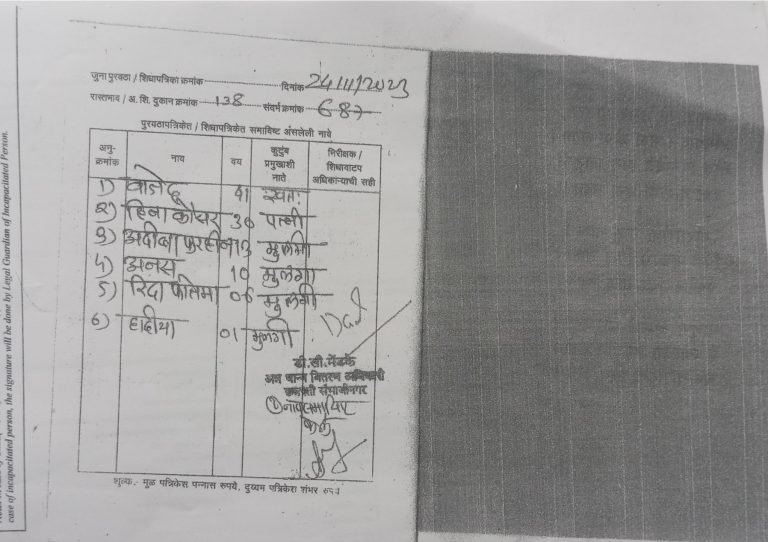 जुना पुरवठा / शिधापत्रिका क्रमांक दिनांक 24/11/2023
रास्तभाव / अ. शि. दुकान क्रमांक 138 संदर्भ क्रमांक
पुरवठापत्रिकेत / शिधापत्रिकेत समाविष्ट असलेली नावे
अनु-क्रमांक नाव वय कुटुंब प्रमुखाशी नाते निरीक्षक / शिधावाटप अधिकाऱ्याची सही
1) वाजेद 41 स्वतः
2) हिना कौसर 36 पत्नी
3) अदीबा फरहीन 13 मुलगी
4) अनस 10 मुलगा
5) रिदा फातिमा 06 मुलगी
6) हादीया 01 मुलगी
डी.सी.मेंडके
अन्न धान्य वितरण अधिकारी
छत्रपती संभाजीनगर
शुल्क.- मुळ पत्रिकेस पन्नास रुपये, दुय्यम पत्रिकेस शंभर रुपये
case of incapacitated person, the signature will be done by Legal Guardian of Incapacitated Person.